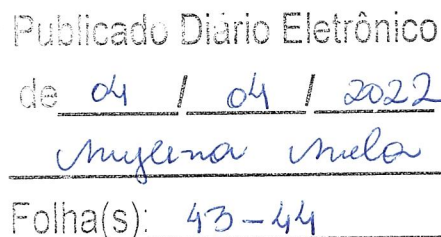 Publicado Diário Eletrônico
de 04 / 04 / 2022
Mylena Melo
Folha(s): 43-44